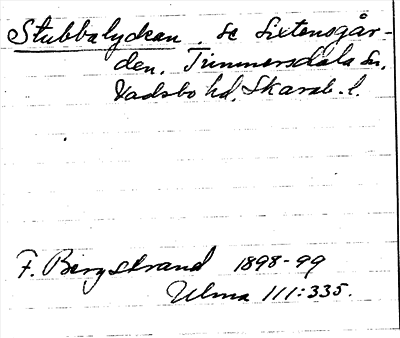 Stubbalyckan. se Sixtensgår-
den, Timmersdala sn,
Vadsbo hd, Skarab. l.
F. Bergstrand 1898-99
Ulma 111:335.